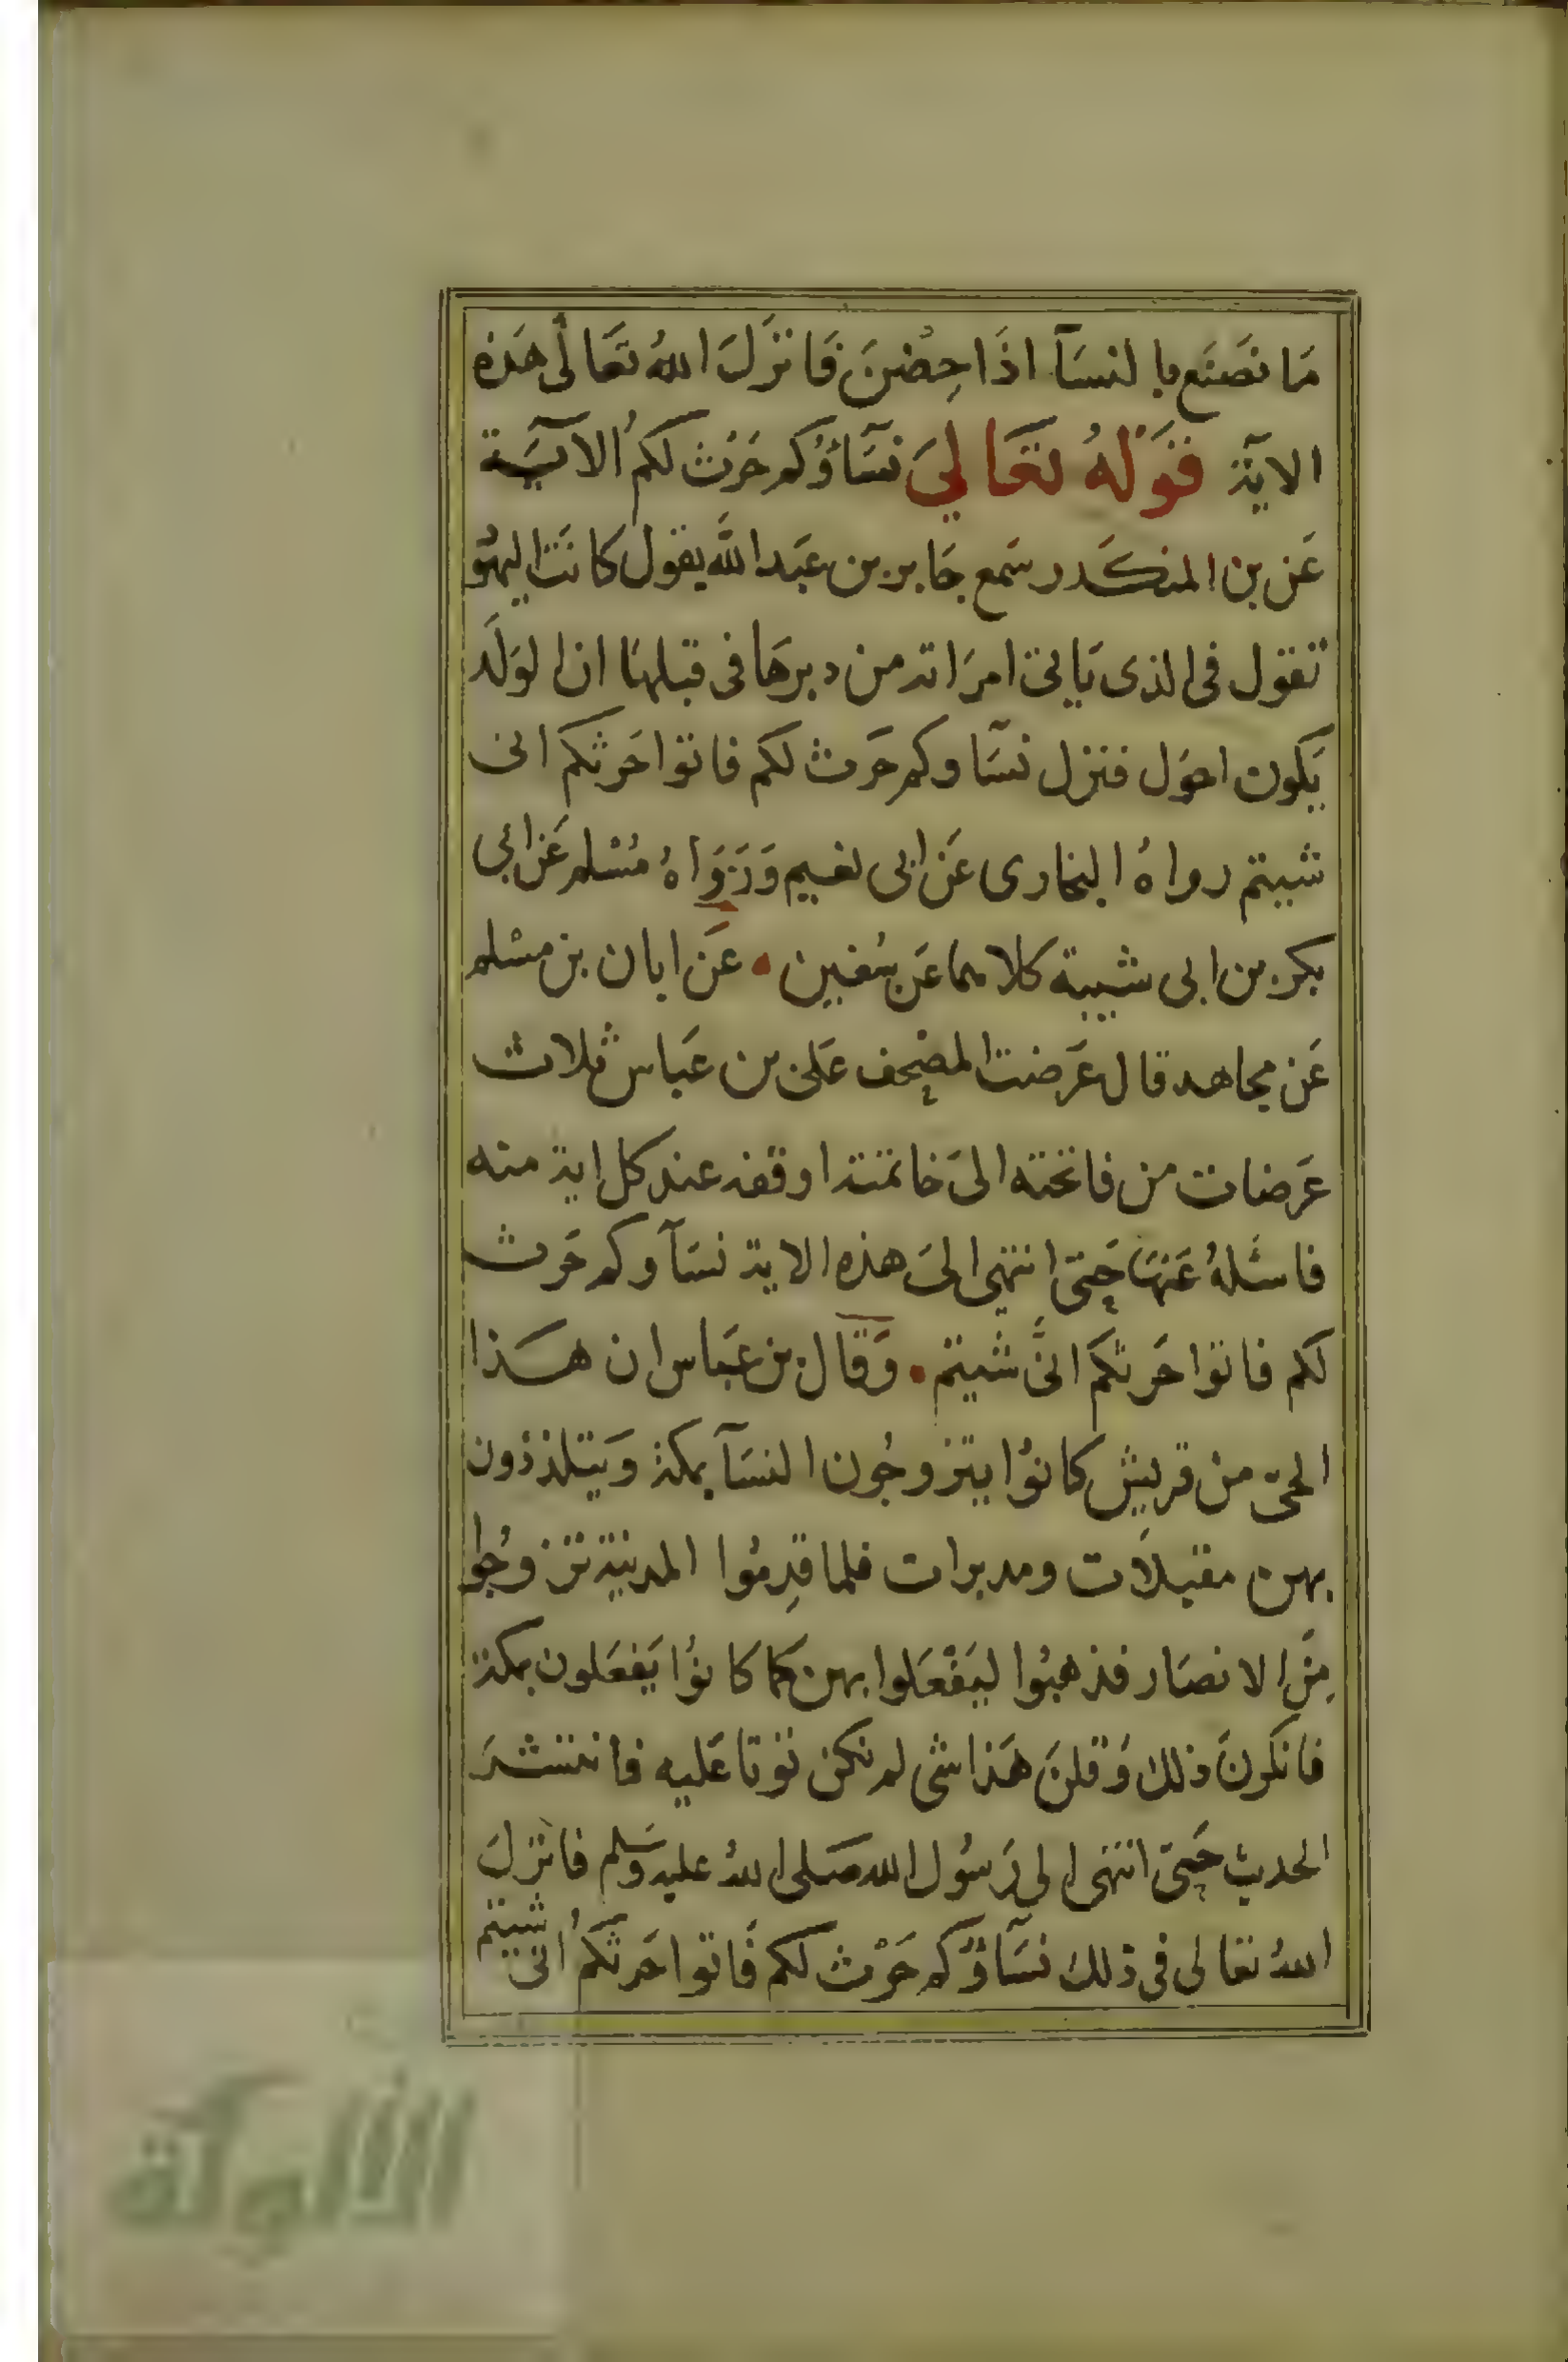 مَا نصَنَع بالنسَآ اذَا حِضْنَ فَانزَلَ اللهُ تعَالى هَذه
الايَة قوَلهُ تعَالىَ نسَآؤُكم حَرْث لكمُ الآيَة
عَن بن المنكَدر سَمع جَابر بن عَبَد اللَّه يقول كانَت اليهُو
تقول فى الذى يَاتى امرَاته من دبرهَا فى قبلهَا ان الولَد
يَكون احوَل فنزل نسَآوكم حَرث لكم فاتوا حَرثكم انى
شيتم رواهُ البخارى عَن ابى نعيم وَرَوَاهُ مُسْلم عَن ابى
بكر بن ابى شيبة كلاهما عَن سُفين . عَن ابان بن مسْلم
عَن مجاهد قال عَرضت المصْحف عَلى بن عَباس ثلاث
عَرضات من فاتحته الىَ خاتمته اوقفه عند كل اية منه
فاسْئلهُ عَنهَا حَتى انتهى الىَ هذه الاية نسَآوكم حَرث
لكم فاتوا حَرثكم انَّى شيتم . وَقال بن عَباس ان هَذا
الحىَ من قريش كانوُا يتزوجُون النسَآ بمكة وَيَتلذذون
بهن مقبلَات ومدبرات فلما قدِمُوا المدينَة تزوجُوا
مِنَ الانصَار فذهبُوا ليَفْعَلوا بهن كما كانوُا يَفعَلون بمكة
فانكرنَ ذلك وَقلنَ هَذا شى لم نكن نوتا عَليه فانتشرَ
الحديث حَتىَ انتهى الى رَسُول الله صَلى اللهُ عليه وَسَلم فانزلَ
اللهُ تعالى فى ذلك نسَآؤُكم حَرْث لكم فَاتوا حَرثكمُ انى شيتم
الألوكة